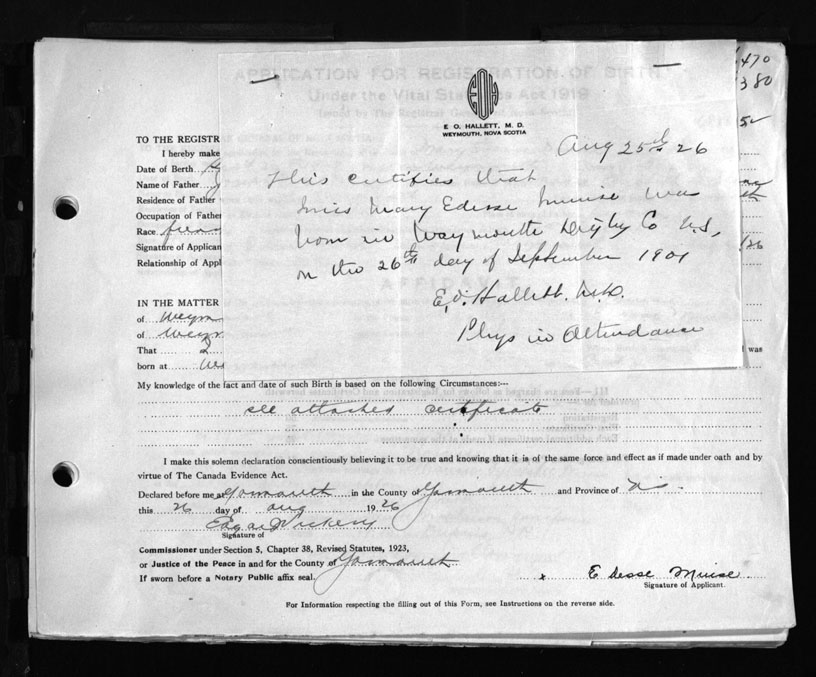 APPLICATION FOR REGISTRATION OF BIRTH
Under the Vital Statistics Act 1919
470
380
EOH
E. O. HALLETT, M. D.
WEYMOUTH, NOVA SCOTIA
Aug 25th 26
This certifies that
Miss Mary Edesse Muise was
born in Weymouth Digby Co N.S,
on the 26th day of September 1901
E. O. Hallett. M.D.
Phys in Attendance
TO THE REGISTR
I hereby make
Date of Birth
Name of Father
Residence of Father
Occupation of Father
Race
Signature of Applican
Relationship of Appl
/26
AFFIDAVIT
IN THE MATTER
of Weym
of Weym
That I
was
born at We
My knowledge of the fact and date of such Birth is based on the following Circumstances:—
see attached certificate
I make this solemn declaration conscientiously believing it to be true and knowing that it is of the same force and effect as if made under oath and by
virtue of The Canada Evidence Act.
Declared before me at Yarmouth in the County of Yarmouth and Province of N.S.
this 26 day of Aug 1926
Edgar Vickery
Signature of
Commissioner under Section 5, Chapter 38, Revised Statutes, 1923,
or Justice of the Peace in and for the County of Yarmouth
If sworn before a Notary Public affix seal.
x Edesse Muise
Signature of Applicant.
For Information respecting the filling out of this Form, see Instructions on the reverse side.